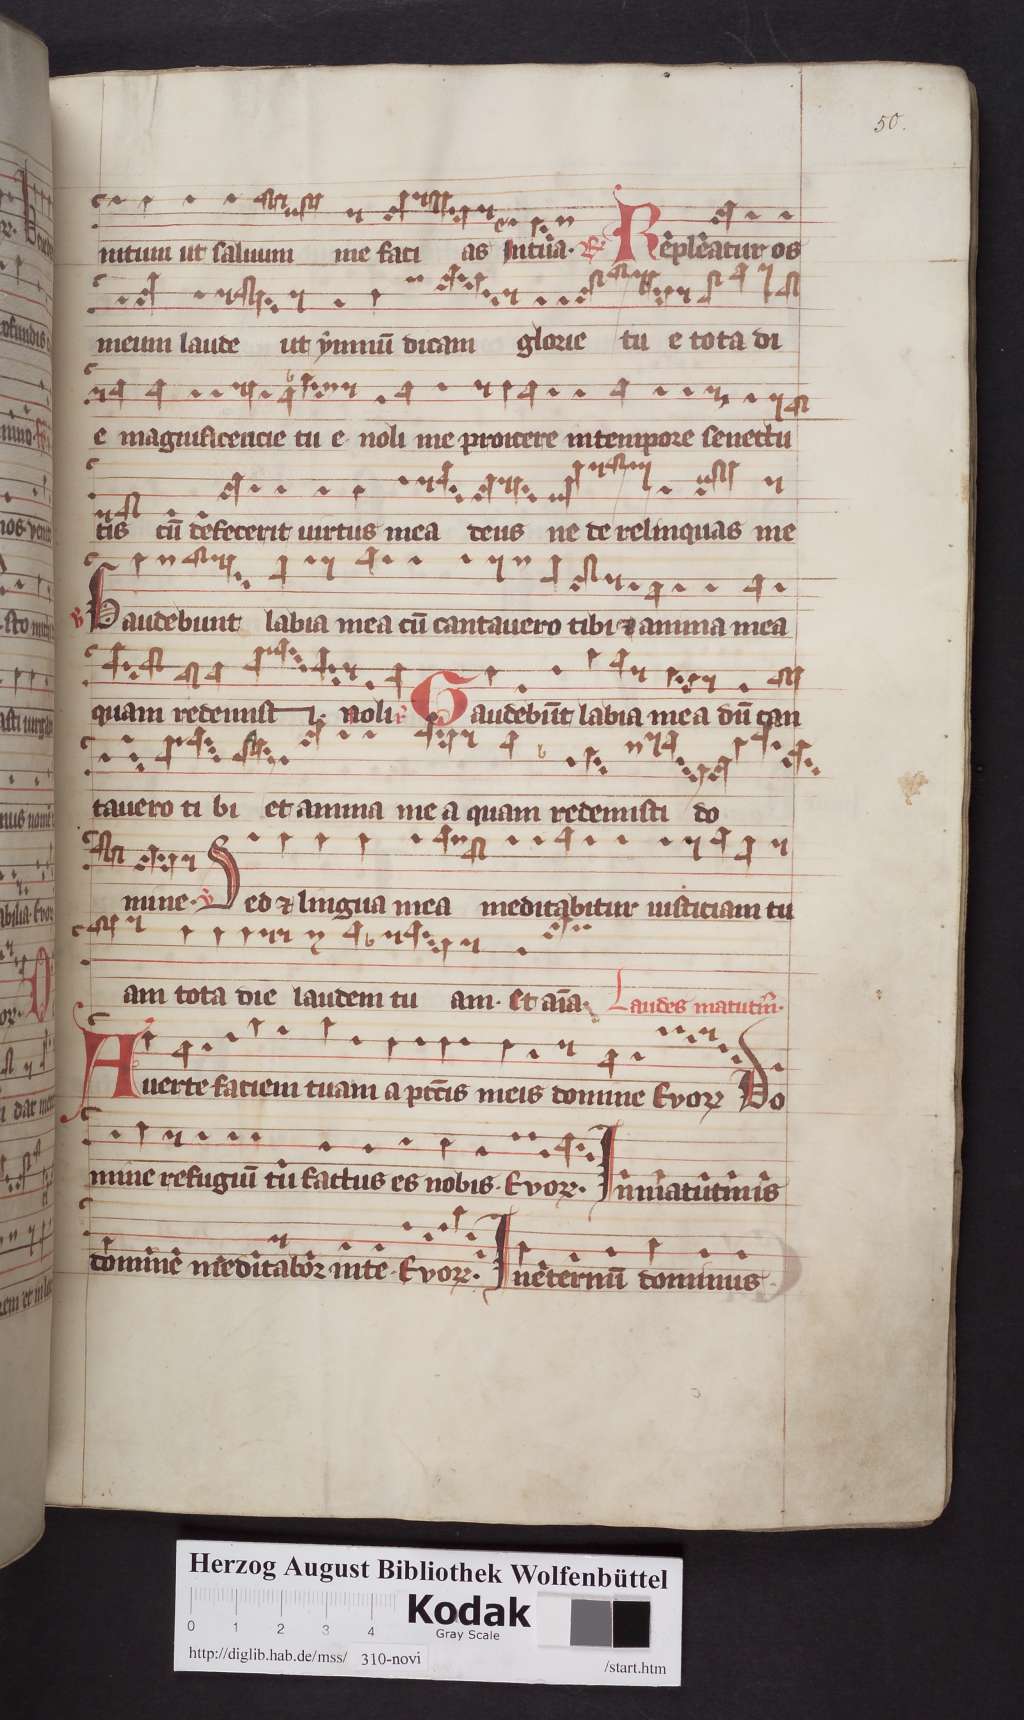 50.
nitum ut saluum me faci as Intu̅a· R̷ Repleatur os
meum laude ut ymnu̅ dicam glorie tu e tota di
e magnificencie tu e· noli me proicere intempore senectu
tis cu̅ defecerit uirtus mea deus ne derelinquas me
V Gaudebunt labia mea cu̅ cantauero tibi ⁊ anima mea
quam redemist i· noli R Gaudebu̅t labia mea du̅ can
tauero ti bi et anima me a quam redemisti do
mine· V Sed ⁊ lingua mea meditabitur iusticiam tu
am tota die laudem tu am· Et ai̅a· Laudes matuti̅·
Auerte faciem tuam a pcc̅is meis domine Evoꝝ Do
mine refugiu̅ tu factus es nobis· Evoꝝ· Inmatutinis
domine meditabor inte· Evoꝝ· Ineternu̅ dominus
Herzog August Bibliothek Wolfenbüttel
0 1 2 3 4 Kodak
Gray Scale
http://diglib.hab.de/mss/ 310-novi /start.htm